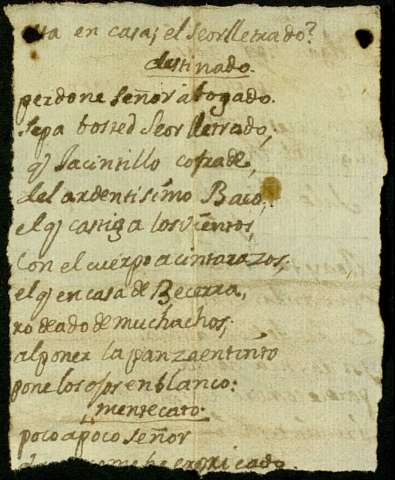 en casa, el Seor lletrado?
destinado.
perdone señor abogado.
sepa bosted Seor lletrado,
q Jacintillo cofrade,
del ardentisimo Baco,
el q castiga a los vientos,
con el cuerpo a cintarazos,
el q en casa de Becerra,
rodeado de muchachos,
al poner la panza en tinto
pone los ojos en blanco:
mentecato.
poco a poco señor